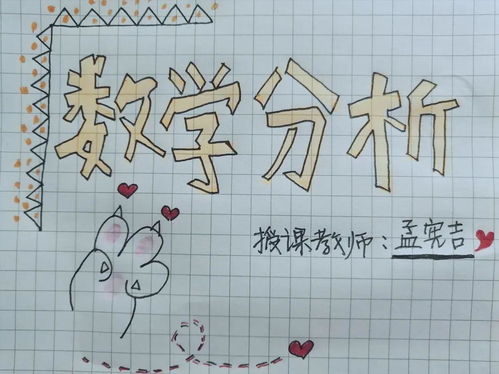 数学分析
授课教师：孟宪吉